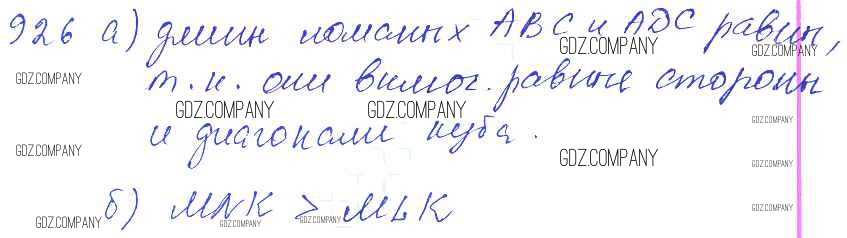 926 а) длин ломаных ABC и ADC равны,
GDZ.COMPANY
т.к. они включ. равные стороны
GDZ.COMPANY
GDZ.COMPANY GDZ.COMPANY
GDZ.COMPANY
и диагонали куба.
GDZ.COMPANY
GDZ.COMPANY
GDZ.COMPANY
б) MNK > MLK
GDZ.COMPANY
GDZ.COMPANY
GDZ.COMPANY
GDZ.COMPANY